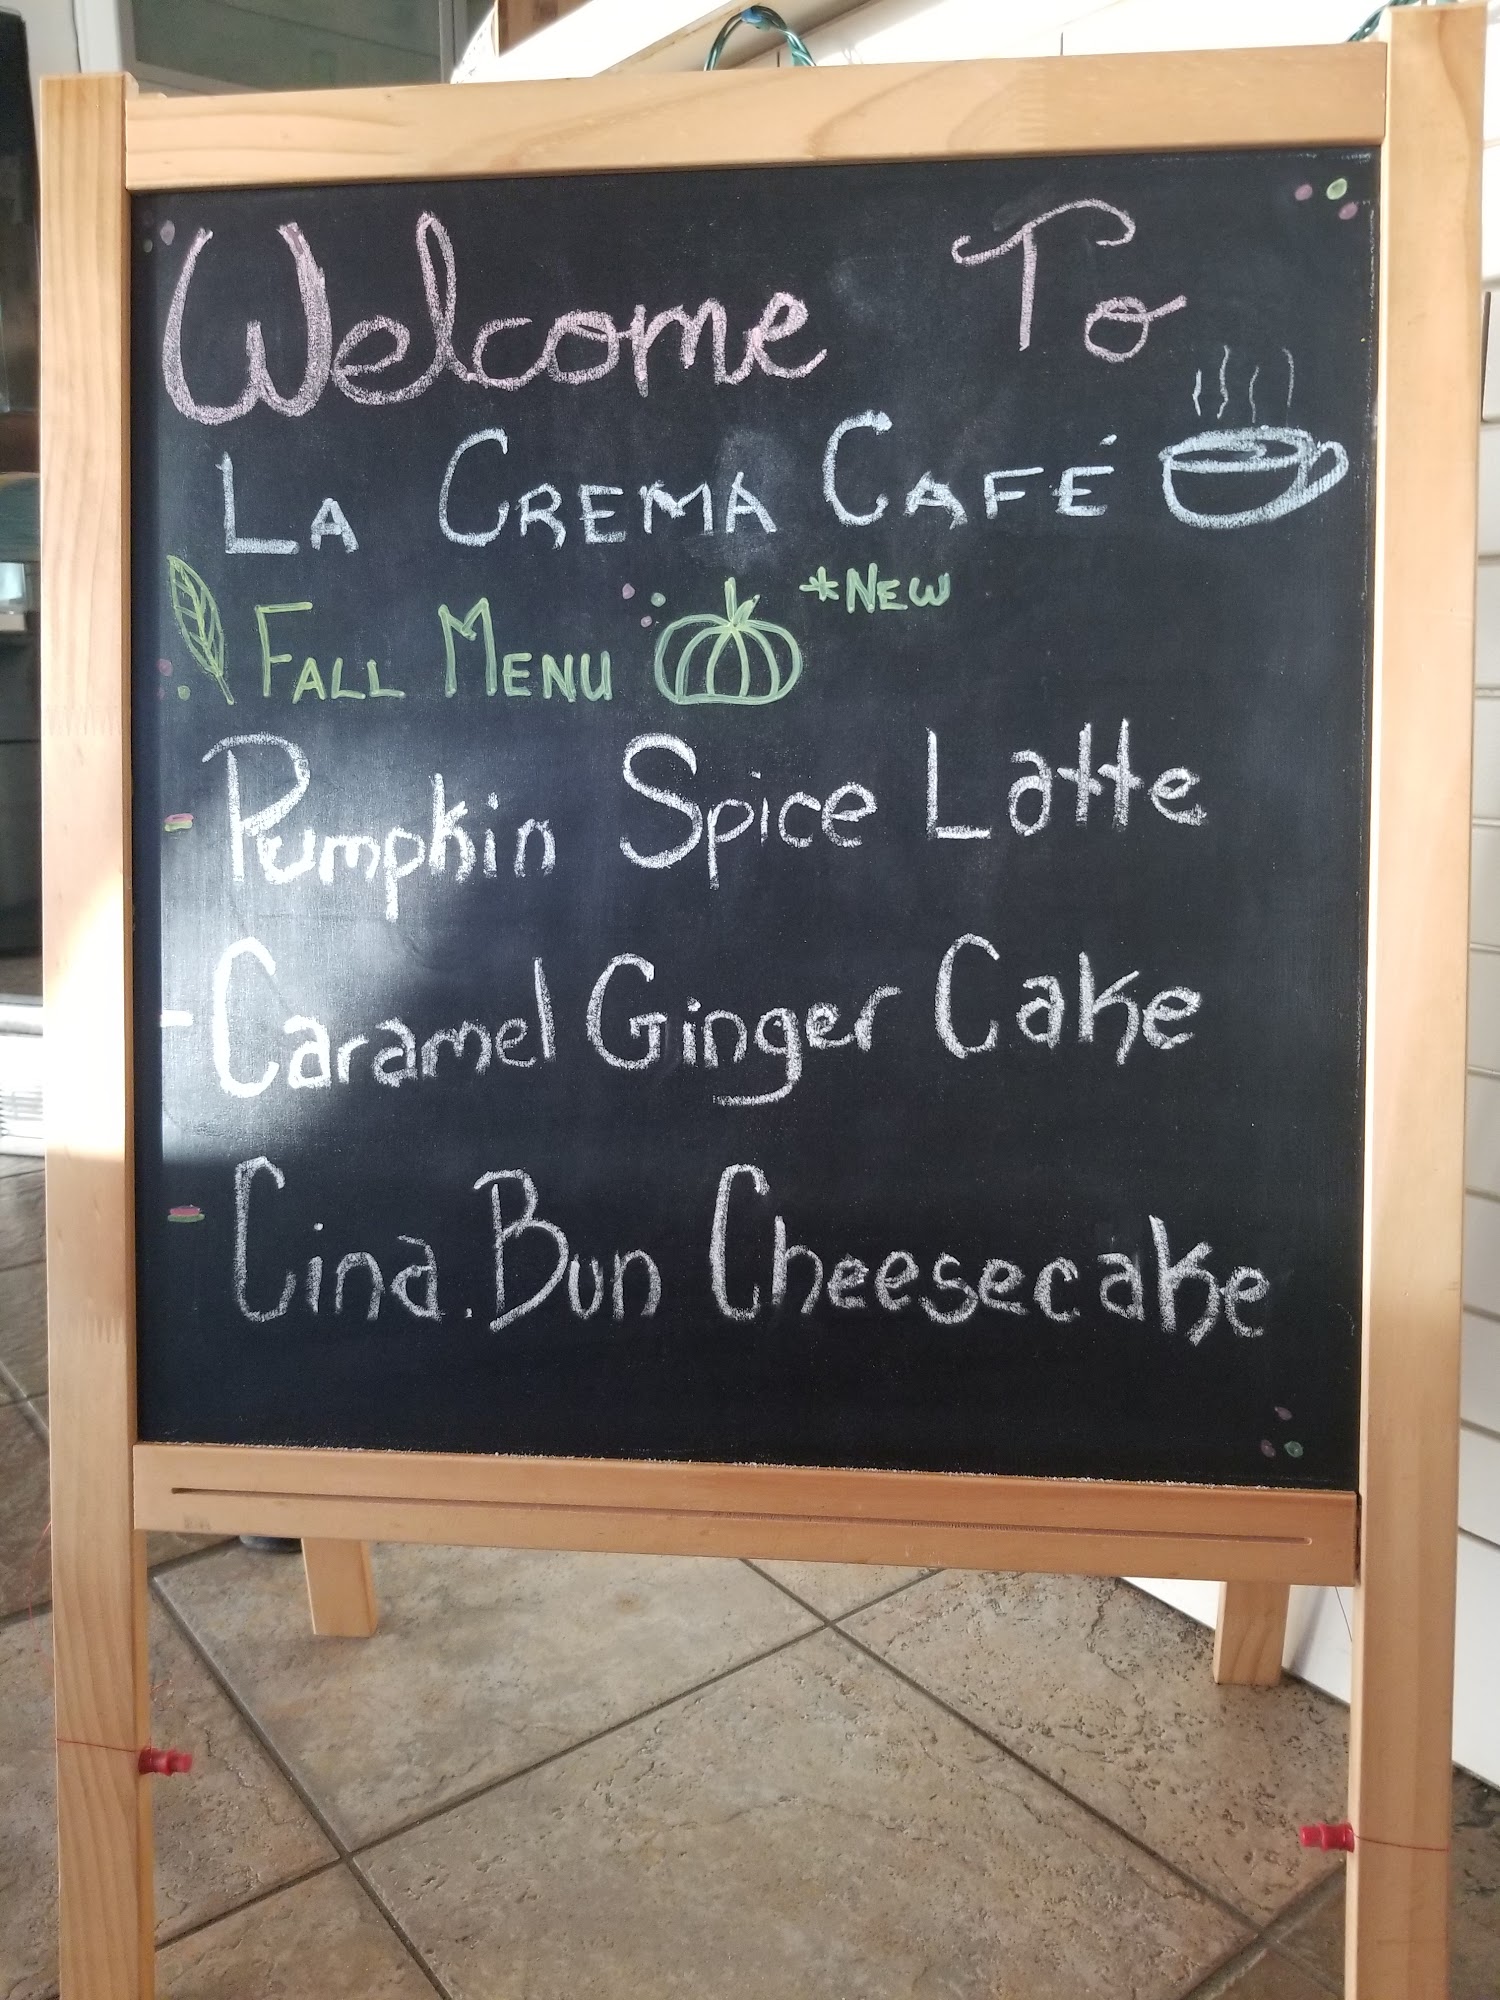 Welcome To
LA CREMA CAFÉ
FALL MENU *NEW
- Pumpkin Spice Latte
- Caramel Ginger Cake
- Cina.Bun Cheesecake